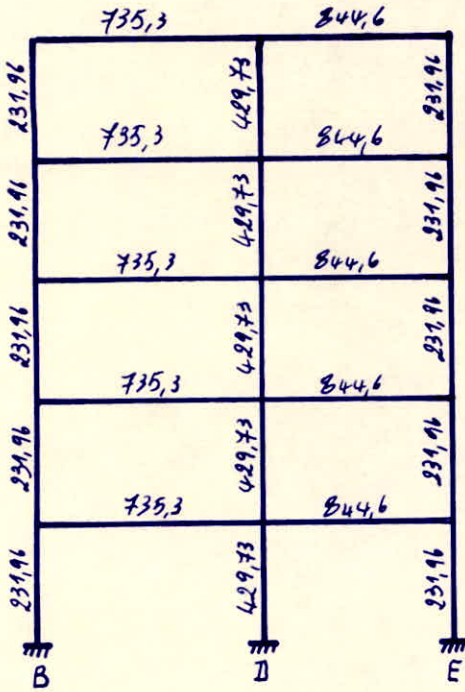 735,3 844,6
231,96 429,73 231,96
735,3 844,6
231,96 429,73 231,96
735,3 844,6
231,96 429,73 231,96
735,3 844,6
231,96 429,73 231,96
735,3 844,6
231,96 429,73 231,96
B D E